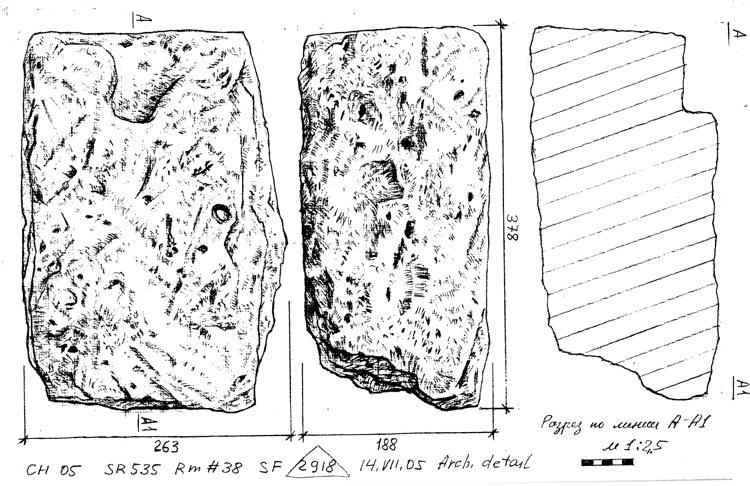 A
A
378
263
188
A1
A1
Разрез по линии А-А1
м 1:2,5
CH 05 SR 535 Rm #38 SF 2918 14.VII.05 Arch. detail